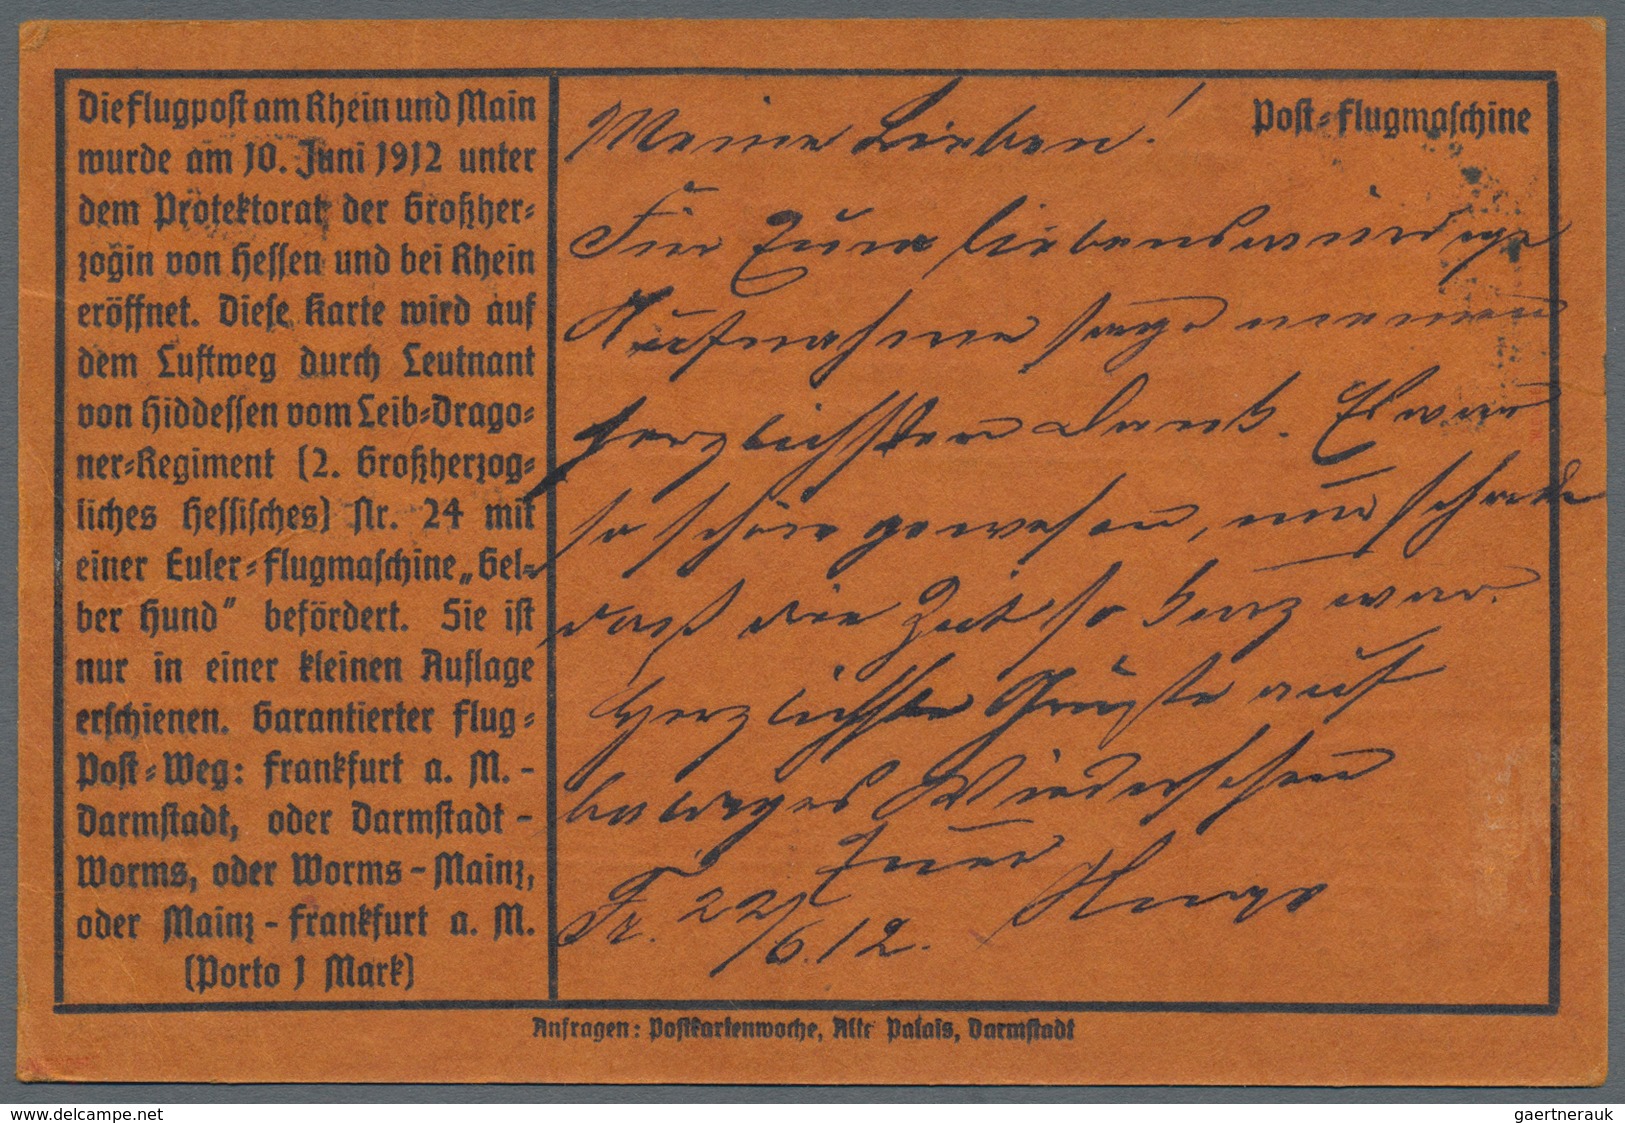 Die Flugpost am Rhein und Main
wurde am 10. Juni 1912 unter
dem Protektorat der Großher-
zogin von Hessen und bei Rhein
eröffnet. Diese Karte wird auf
dem Luftweg durch Leutnant
von Hiddessen vom Leib-Drago-
ner-Regiment (2. Großherzog-
liches Hessisches) Nr. 24 mit
einer Euler-Flugmaschine „Gel-
ber Hund" befördert. Sie ist
nur in einer kleinen Auflage
erschienen. Garantierter Flug-
Post-Weg: Frankfurt a. M. -
Darmstadt, oder Darmstadt -
Worms, oder Worms - Mainz,
oder Mainz - Frankfurt a. M.
(Porto 1 Mark)
Post-Flugmaschine
Meine Lieben!
Für Eure liebenswürdige
Aufnahme sage meinen
herzlichsten Dank. Es war
so schön gewesen, nur schade
daß die Zeit so kurz war.
Herzlichste Grüße auf
baldiges Wiedersehen
Euer
Fr. 22/6.12. Hugo
Anfragen: Postkartenwoche, Alte Palais, Darmstadt
www.delcampe.net
gaertnerauk